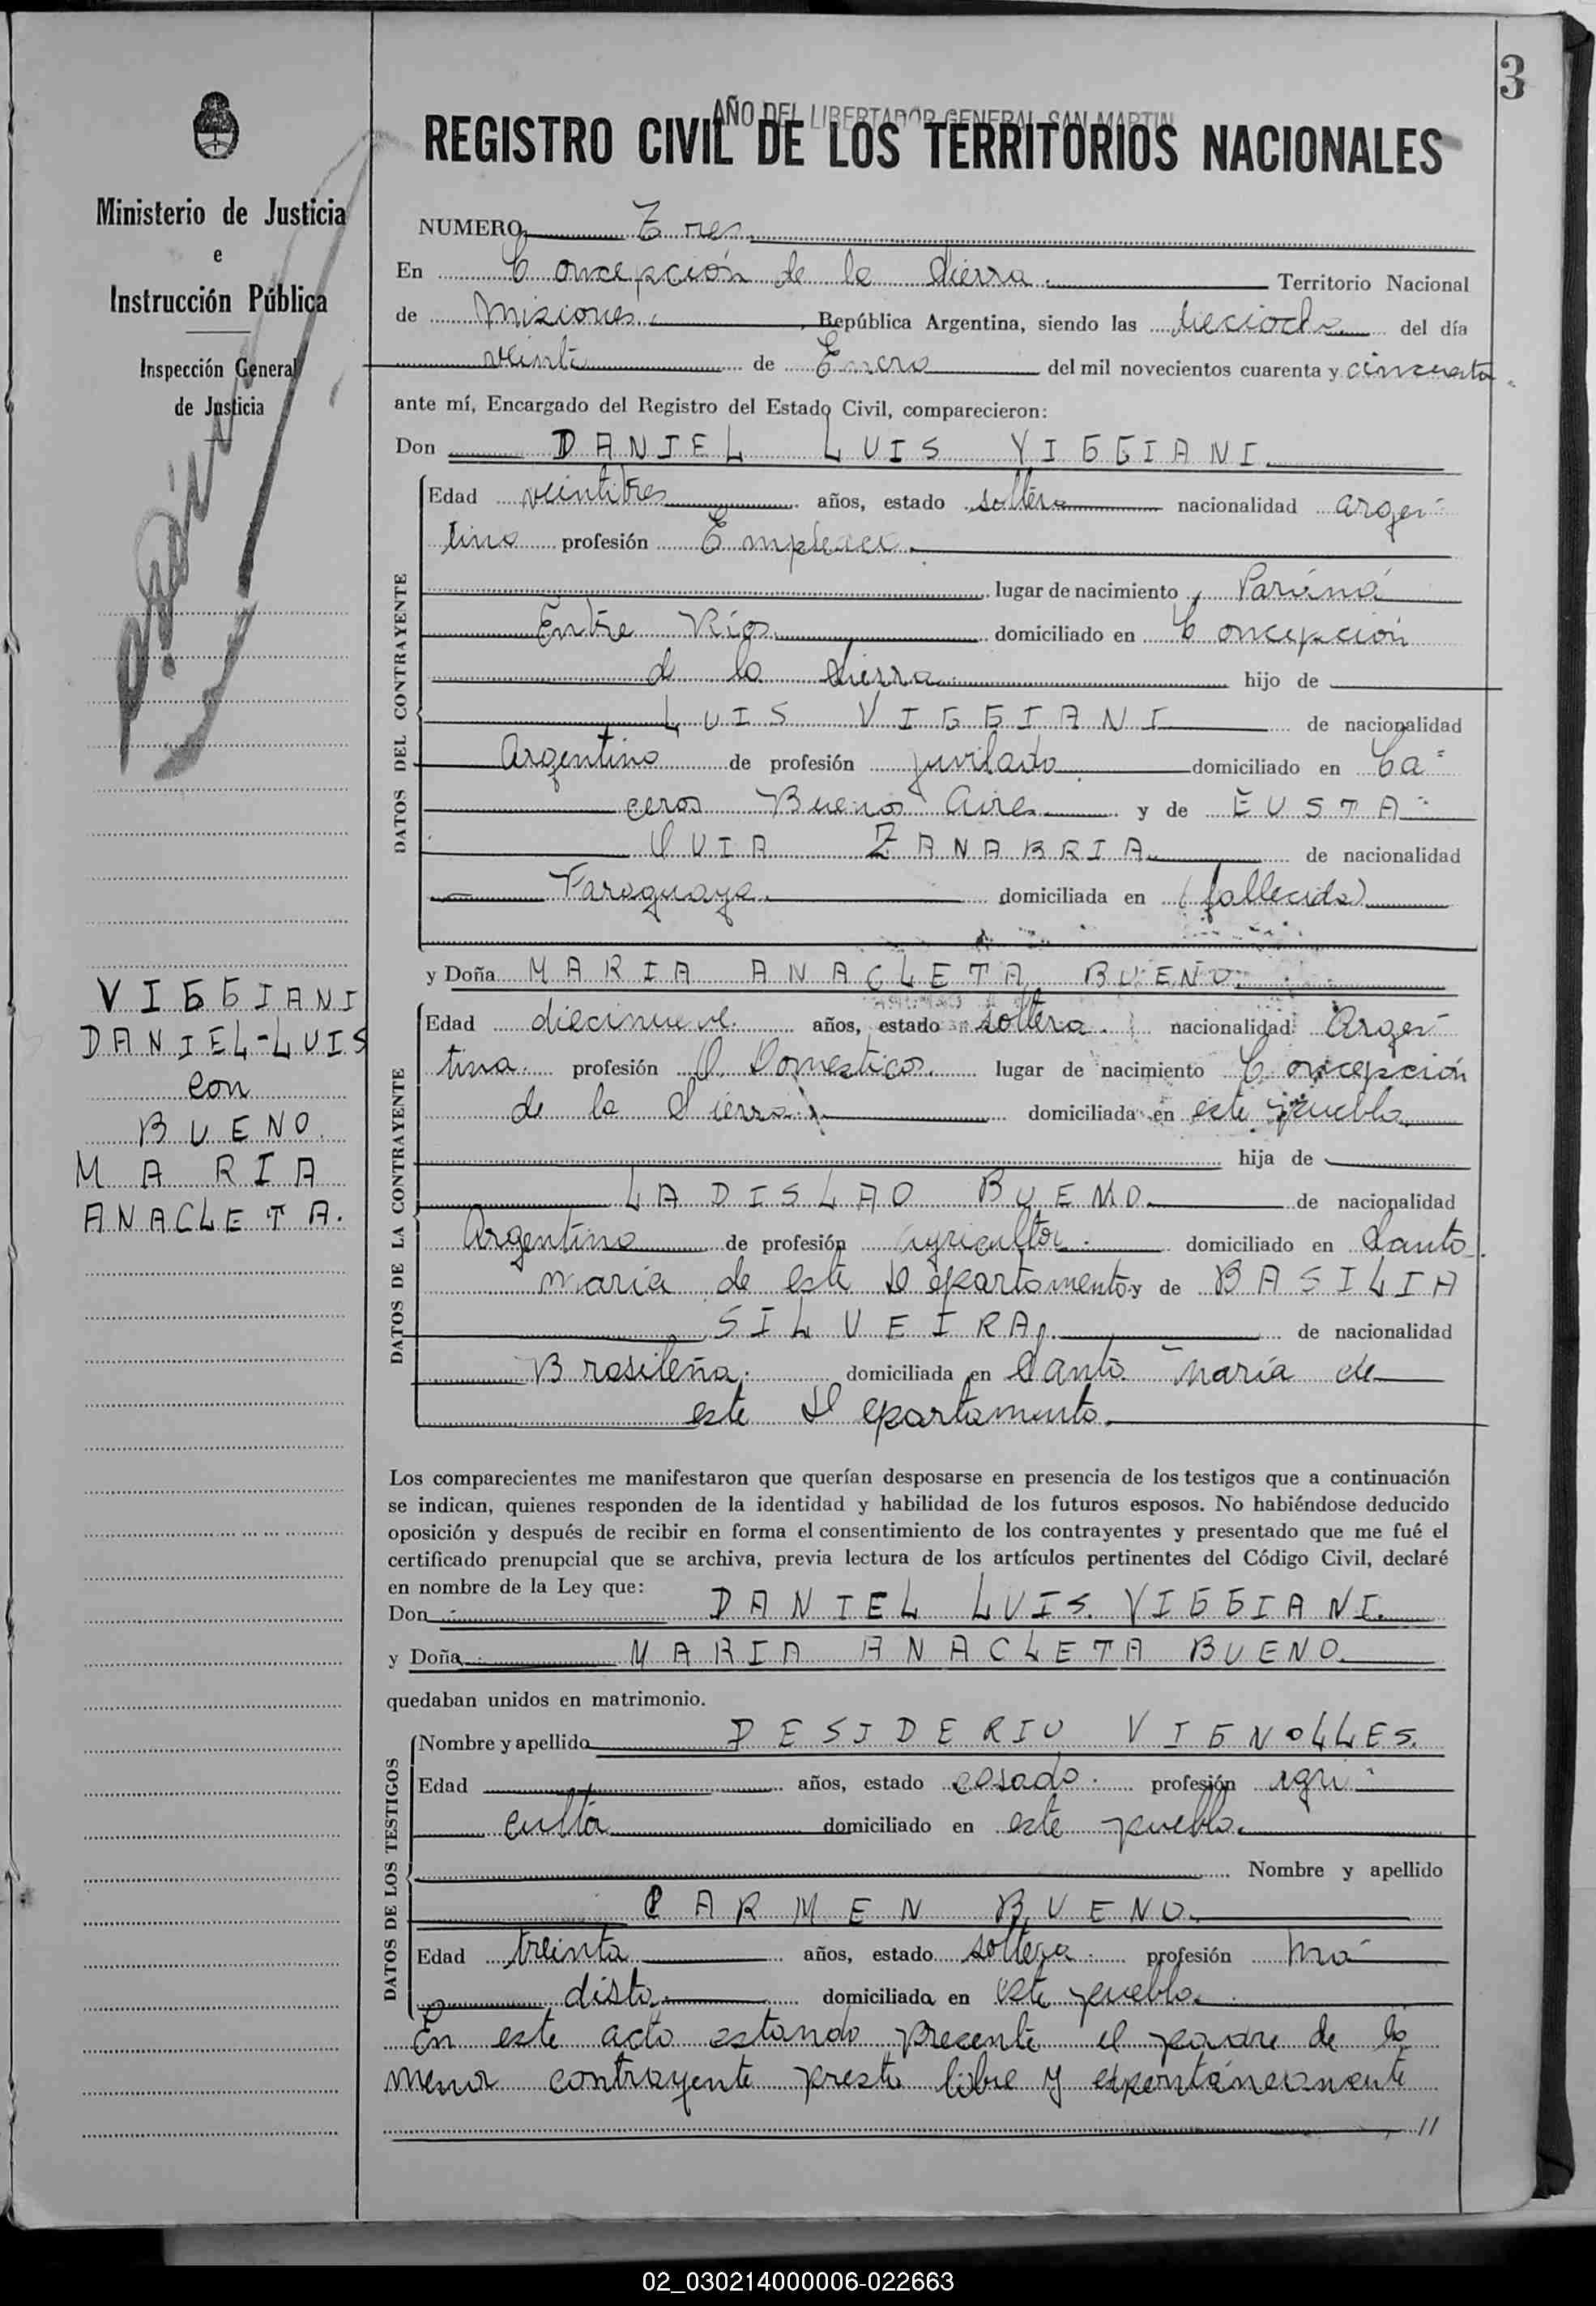 3
AÑO DEL LIBERTADOR GENERAL SAN MARTIN
REGISTRO CIVIL DE LOS TERRITORIOS NACIONALES
Ministerio de Justicia
e
Instrucción Pública
Inspección General
de Justicia
VIGGIANI
DANIEL-LUIS
con
BUENO.
MARIA
ANACLETA.
NUMERO Tres.
En Concepción de la Sierra. Territorio Nacional
de Misiones, República Argentina, siendo las dieciocho del día
veinte de Enero del mil novecientos cuarenta y cincuenta
ante mí, Encargado del Registro del Estado Civil, comparecieron:
Don DANIEL LUIS VIGGIANI.
DATOS DEL CONTRAYENTE
Edad veintitres años, estado soltero nacionalidad argen-
tino profesión Empleado.
lugar de nacimiento Paraná
Entre Ríos. domiciliado en Concepción
de la Sierra. hijo de
LUIS VIGGIANI de nacionalidad
Argentino de profesión juvilado domiciliado en Ca-
ceros Buenos Aires y de EUSTA-
QUIA ZANABRIA. de nacionalidad
Paraguaya. domiciliada en (fallecida)
y Doña MARIA ANACLETA BUENO.
DATOS DE LA CONTRAYENTE
Edad diecinueve. años, estado soltera. nacionalidad Argen-
tina. profesión Q. Domesticos. lugar de nacimiento Concepción
de la Sierra. domiciliada en este pueblo.
hija de
LADISLAO BUENO. de nacionalidad
Argentino de profesión agricultor. domiciliado en Santa
maria de este Departamento y de BASILIA
SILVEIRA. de nacionalidad
Brasileña. domiciliada en Santa maría de
este Departamento.
Los comparecientes me manifestaron que querían desposarse en presencia de los testigos que a continuación
se indican, quienes responden de la identidad y habilidad de los futuros esposos. No habiéndose deducido
oposición y después de recibir en forma el consentimiento de los contrayentes y presentado que me fué el
certificado prenupcial que se archiva, previa lectura de los artículos pertinentes del Código Civil, declaré
en nombre de la Ley que:
Don DANIEL LUIS VIGGIANI.
y Doña MARIA ANACLETA BUENO.
quedaban unidos en matrimonio.
DATOS DE LOS TESTIGOS
Nombre y apellido DESIDERIO VIGNOLLES.
Edad años, estado casado. profesión agri-
cultor domiciliado en este pueblo.
Nombre y apellido
CARMEN BUENO.
Edad treinta años, estado soltera. profesión mo-
dista. domiciliada en este pueblo.
En este acto estando precente el padre de la
menor contrayente presta libre y expontáneamente
//
02_030214000006-022663